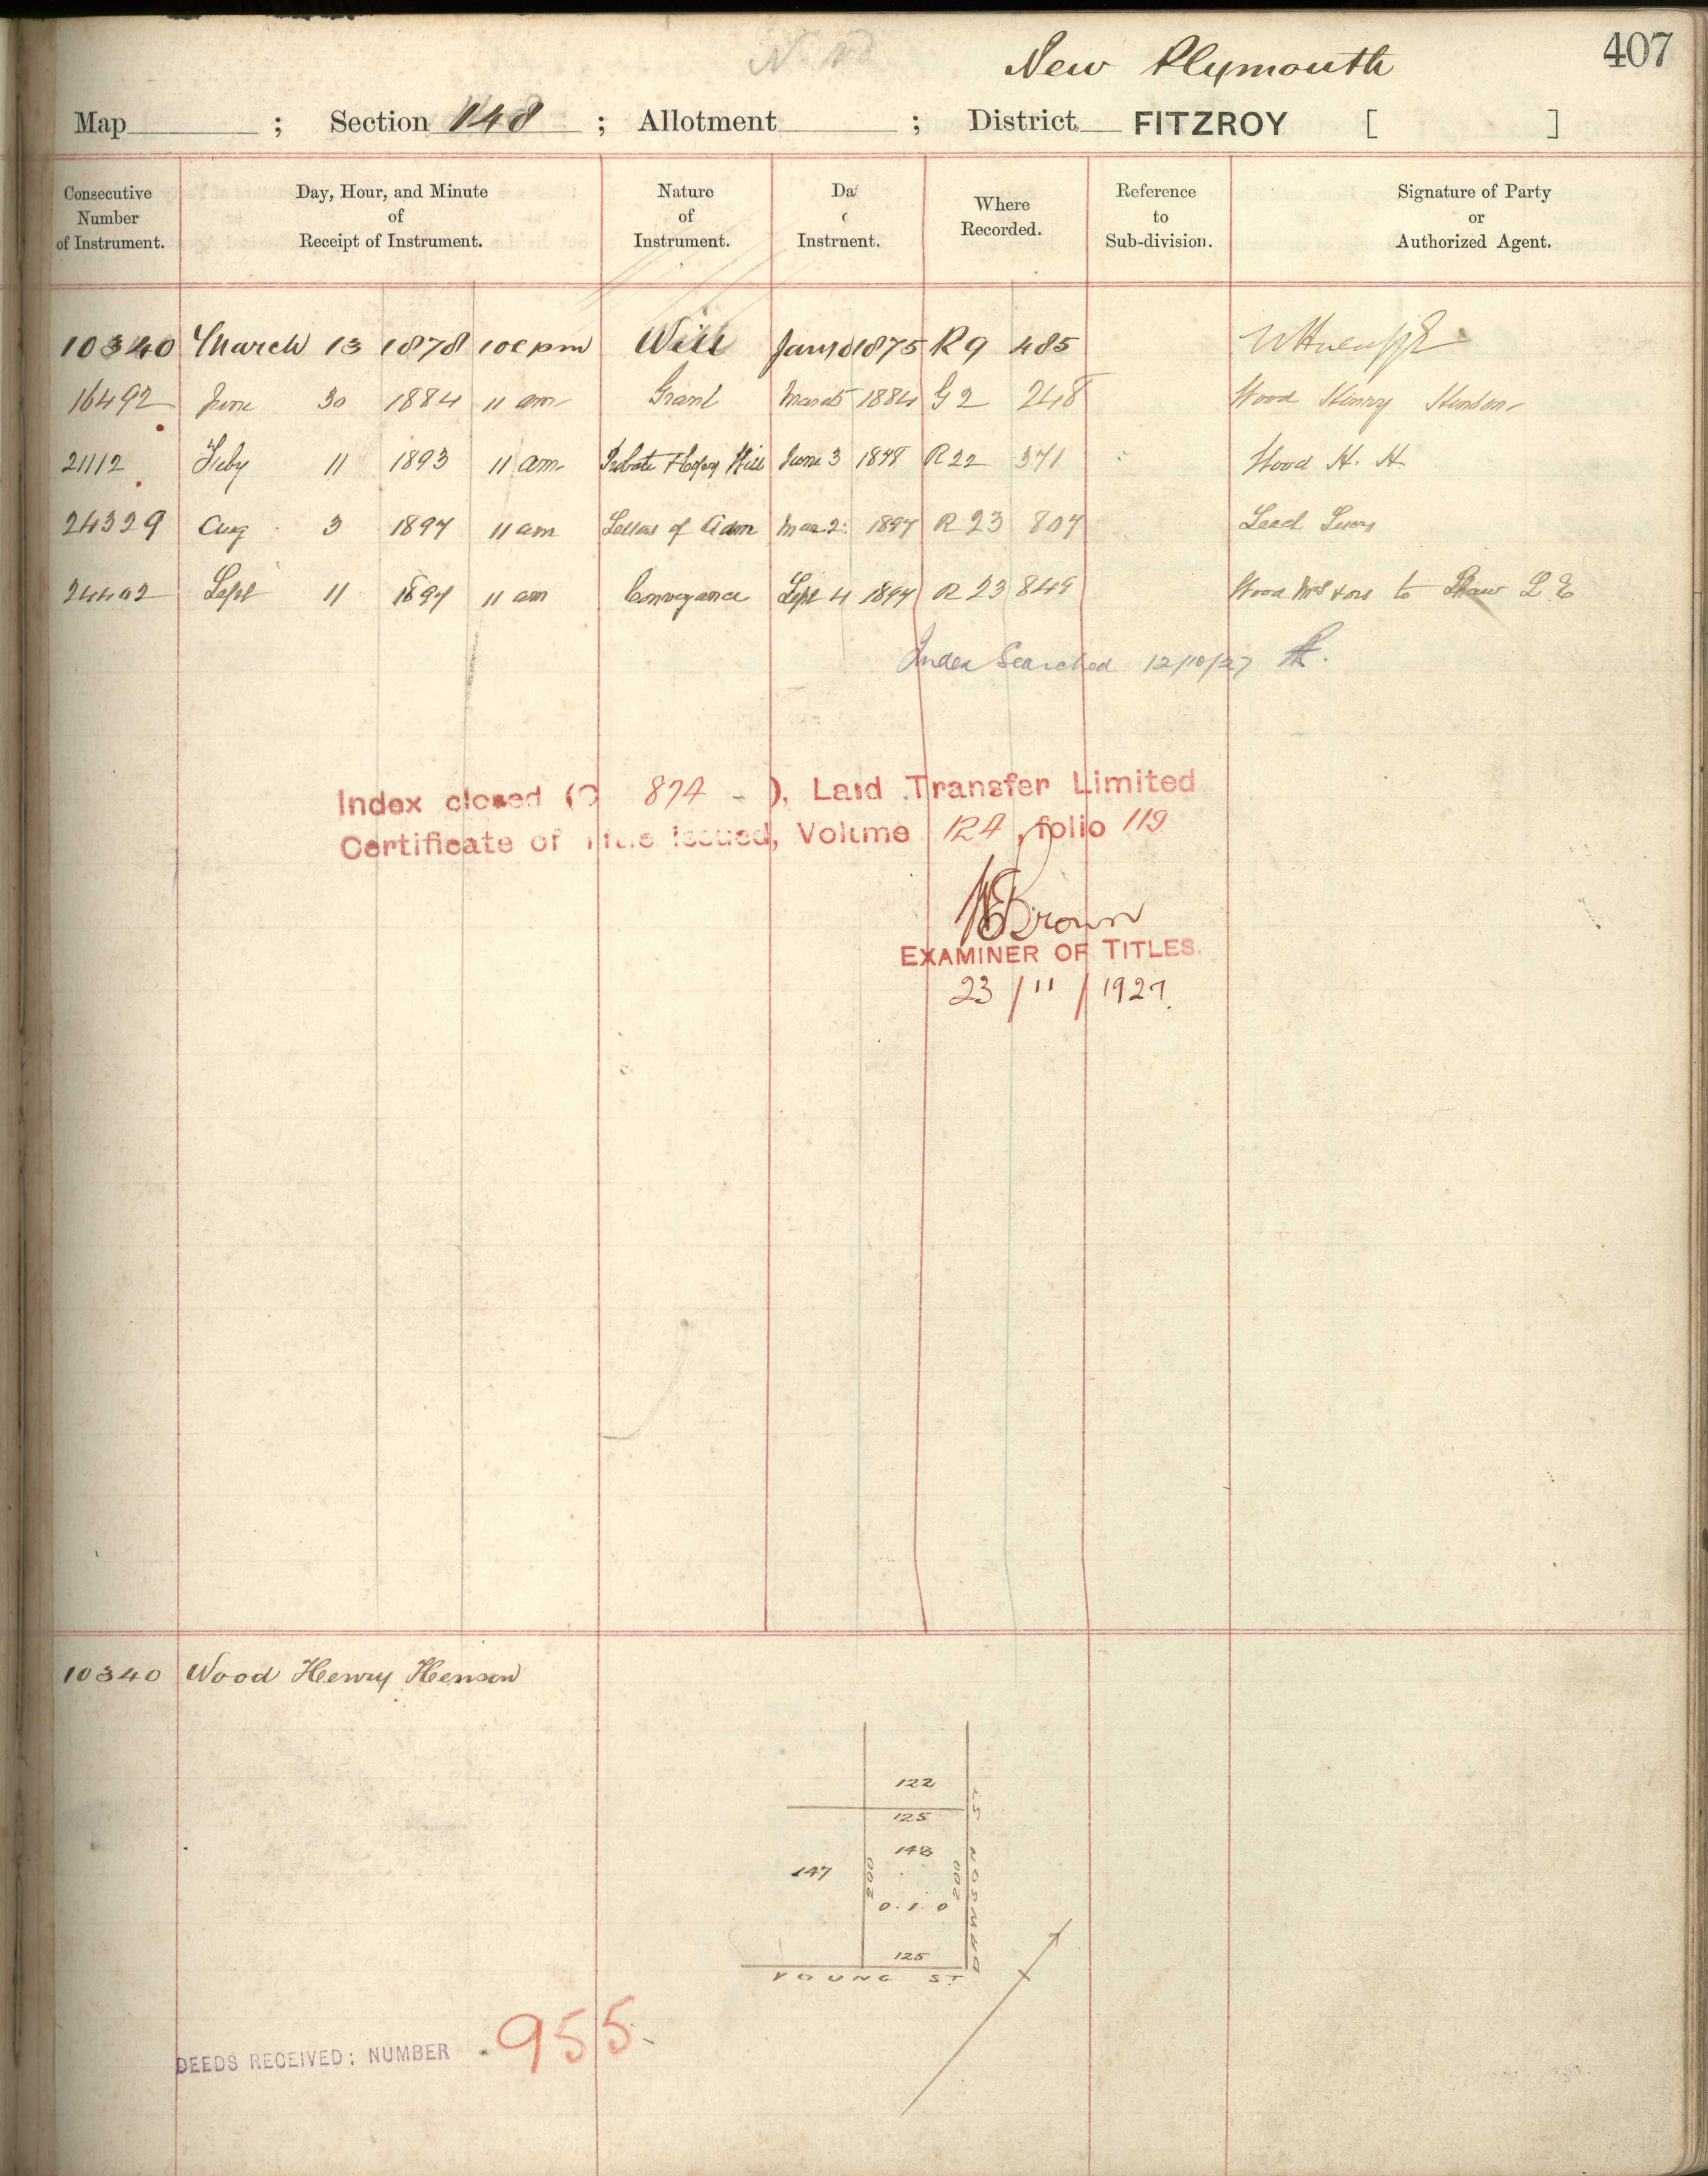 New Plymouth
407
Map ; Section 148 ; Allotment ; District FITZROY [ ]
Consecutive Number of Instrument. Day, Hour, and Minute of Receipt of Instrument. Nature of Instrument. Da Instrnent. Where Recorded. Reference to Sub-division. Signature of Party or Authorized Agent.
10340 March 13 1878 pm Will 1875 R 9 485
16492 June 30 1884 11 am Grant 1884 G 2 248 Wood Henry
21112 Feby 11 1893 11 am Probate Will June 3 R 22 371 Wood H. H.
24329 Aug 3 1897 11 am Letters of Adm 1897 R 23 807
Sept 11 1897 11 am Conveyance Sept 4 1897 R 23 849 Wood to Shaw
Index Searched 12/10/27
Index closed ( 874 - ), Land Transfer Limited
Certificate of Title issued, Volume 124, folio 119
Brown
EXAMINER OF TITLES.
23 / 11 / 1927
10340 Wood Henry Henson
122
125
ST
148
147
200
200
DAWSON
0. 1. 0
125
YOUNG ST.
DEEDS RECEIVED: NUMBER 955